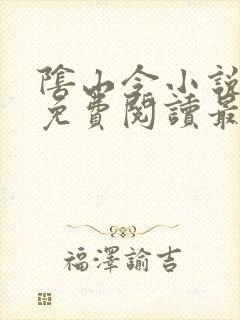 陰山令小說
免費閱讀最
福澤諭吉